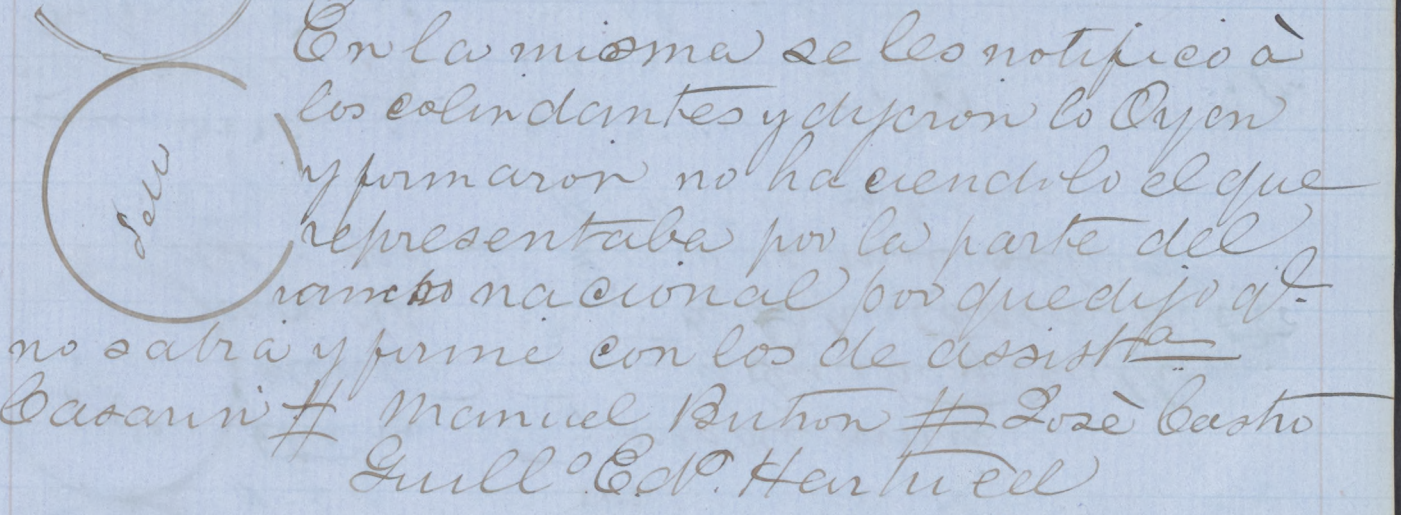 En la misma se les notifico à
los colindantes y dijeron lo Oyen
y firmaron no haciendolo el que
representaba por la parte del
rancho nacional por que dijo qe.
no sabia y firme con los de assista
Casarin # Manuel Butron # Josè Castro
Guillo. Edo. Hartnell
Sello